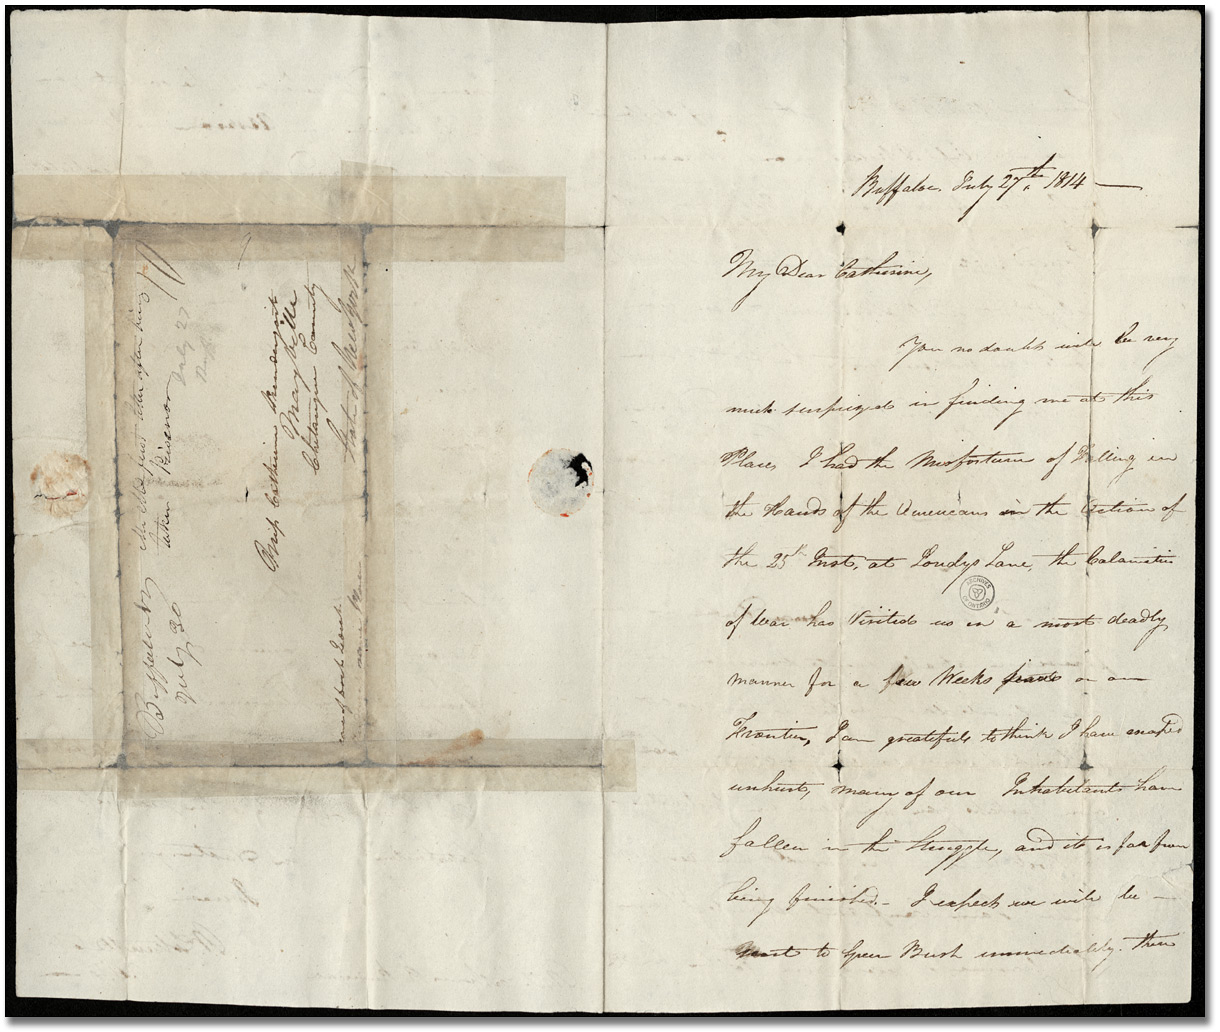 Buffaloe July 27th, 1814
My Dear Catherine,
You no doubt will be very
much surprized in finding me at this
Place I had the Misfortune of Falling in
the Hands of the Americans in the Action of
the 25th Inst, at Londys Lane, the Calamities
of War has Visited us in a most deadly
manner for a few Weeks on our
Frontier, I am gratefull to think I have escaped
unhurt, many of our Inhabitants have
fallen in the Struggle, and it is far from
being finished. - I expect we will be -
sent to Green Bush immediately. there
Buffalo NY
July 30
Wm M first letter after being
taken Prisoner
July 27
Miss Catherine Prendergast
Mayville
Chetauque County
State of New York
ARCHIVES
ONTARIO